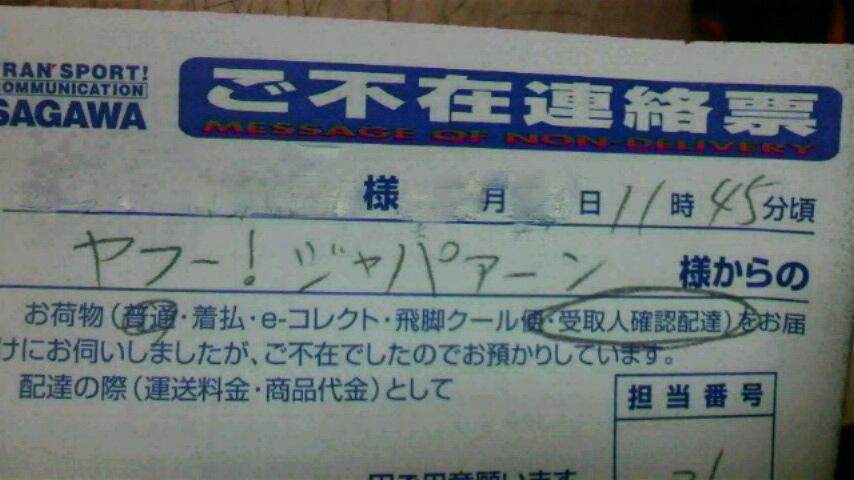 RAN'SPORT!
OMMUNICATION
SAGAWA
ご不在連絡票
MESSAGE OF NON-DELIVERY
様 月 日 11時45分頃
ヤフー!ジャパァーン 様からの
お荷物(普通・着払・e-コレクト・飛脚クール便・受取人確認配達)をお届
けにお伺いしましたが、ご不在でしたのでお預かりしています。
配達の際(運送料金・商品代金)として
担当番号
円ご用意願います